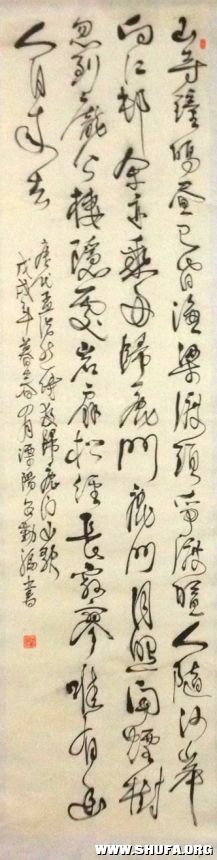 山寺鐘鳴晝已昏漁梁渡頭爭渡喧人隨沙岸
向江邨余亦乘舟歸鹿門鹿門月照開煙樹
忽到龐公棲隱處岩扉松徑長寂寥唯有幽
人自来去
唐代孟浩然诗夜歸鹿门山歌
戊戌年暮春月潭陽書
WWW.SHUFA.ORG